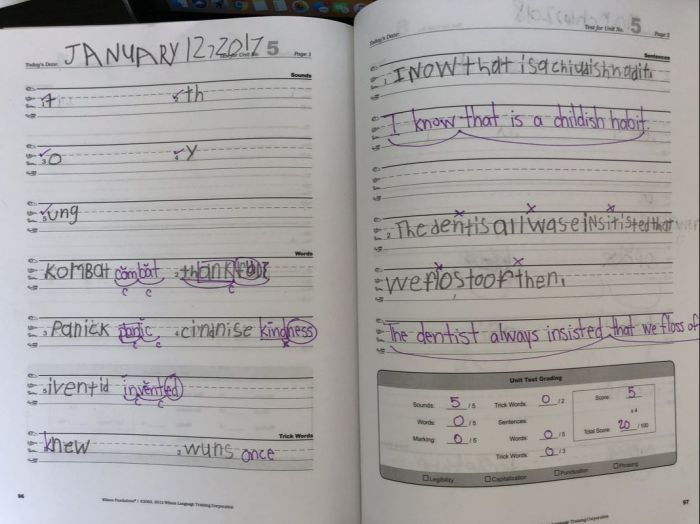 Today's Date: JANUARY 12,2017 Test for Unit No. 5 Page 1
Sounds
th
o y
ung
Words
KOMBAt combat
PANick panic cindnise kindness
iventid invented
Trick Words
knew wuns once
96
Wilson Fundations® | ©2002, 2012 Wilson Language Training Corporation
Today's Date: Test for Unit No. 5 Page 2
Sentences
I know that is a childish habit.
The dentis allwase insitisted that
then.
The dentist always insisted that we floss
Unit Test Grading
Sounds: 5 /5 Trick Words: 0 /2 Score: 5
Words: 0 /5 Sentences: x 4
Marking: 0 /5 Words: 0 /5 Total Score: 20 /100
Trick Words: 0 /3
Legibility Capitalization Punctuation Phrasing
97
Training Corporation